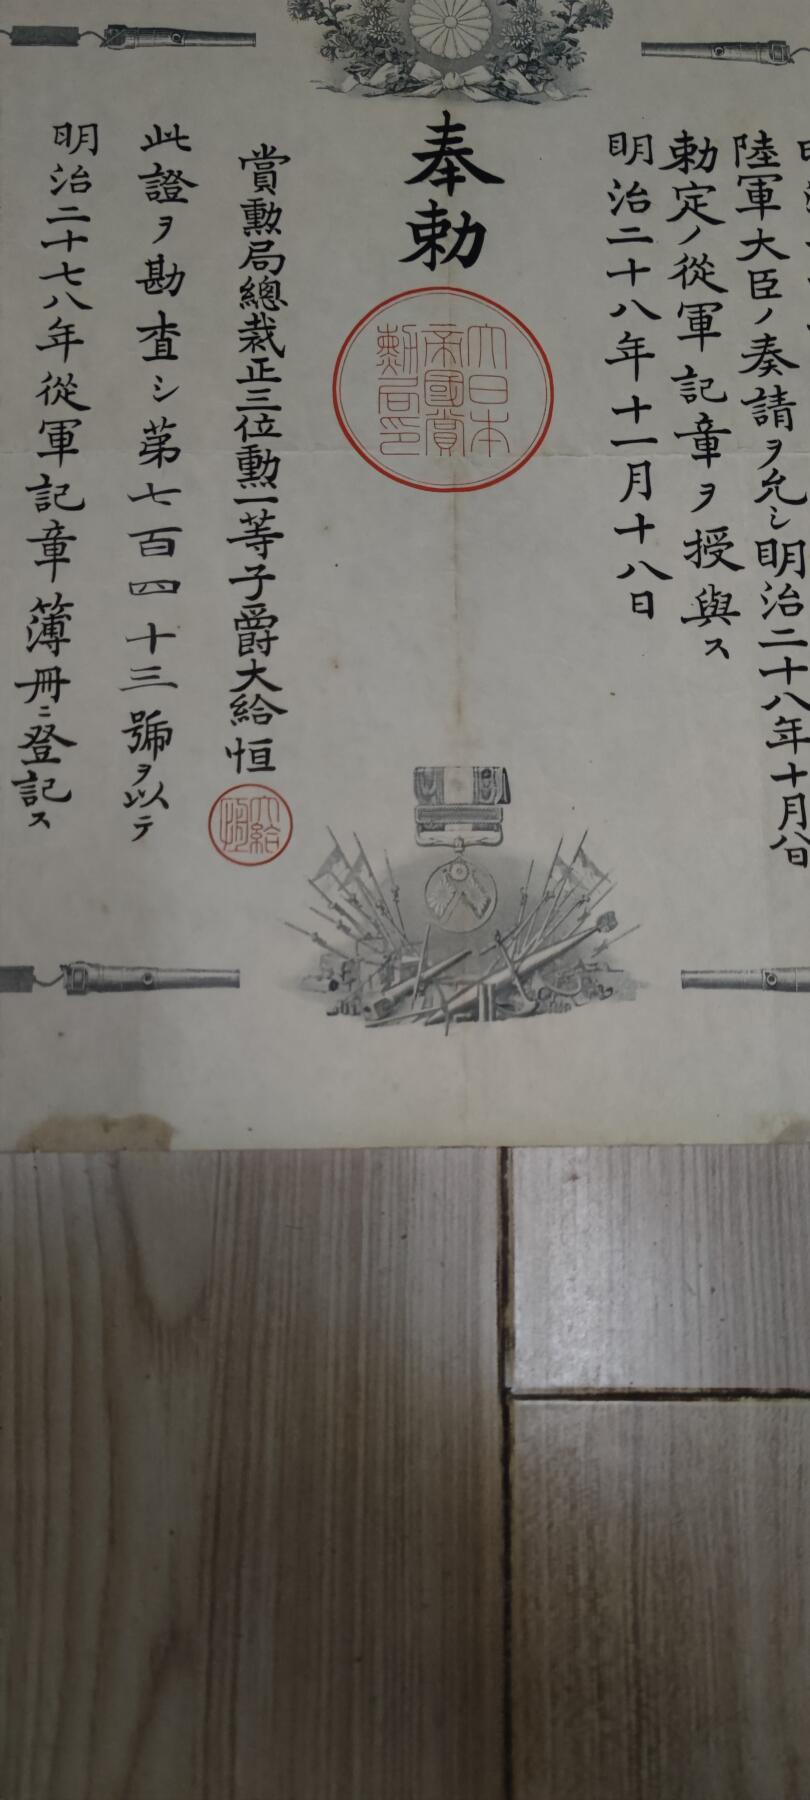 陸軍大臣ノ奏請ヲ允シ明治二十八年十月八日
勅定ノ從軍記章ヲ授與ス
明治二十八年十一月十八日
奉勅
大日本
帝國賞
勲局印
賞勲局總裁正三位勲一等子爵大給恒
大給
恒
此證ヲ勘査シ第七百四十三號ヲ以テ
明治二十七八年從軍記章簿冊ニ登記ス